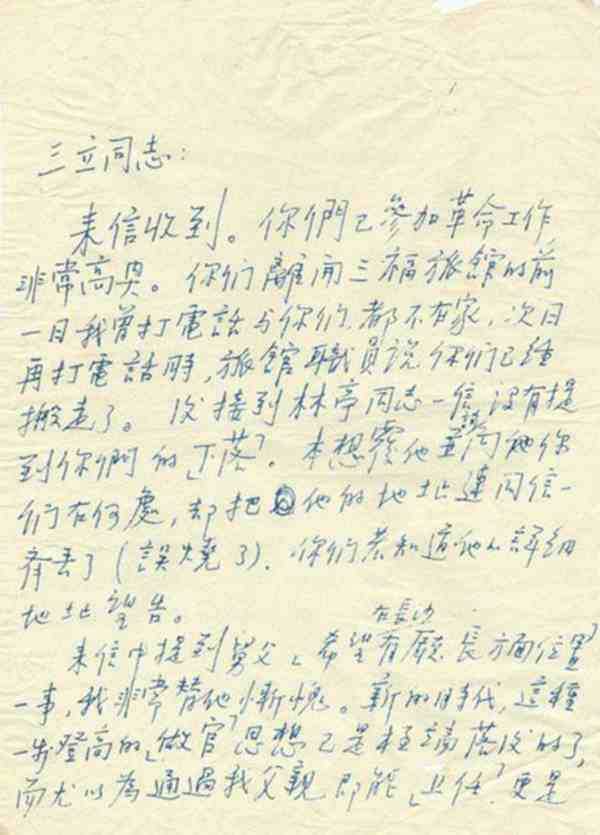 三立同志：
来信收到。你們已參加革命工作
非常高興。你们離開三福旅館的前
一日我曾打電話与你们，都不在家，次日
再打電話時，旅館職員說你们已經
搬走了。後接到林亭同志一信，没有提
到你們的「下落」。本想覆他並詢他你
们在何處，却把他的地址連同信一
齊丢了（誤燒了）。你们若知道他的詳細
地址望告。
在長沙
来信中提到舅父「希望有廳長方面位置」
一事，我非常替他慚愧。新的時代，這種
一步登高的「做官」思想已是極端落後的了，
而尤以為通過我父親即能「上任」，更是